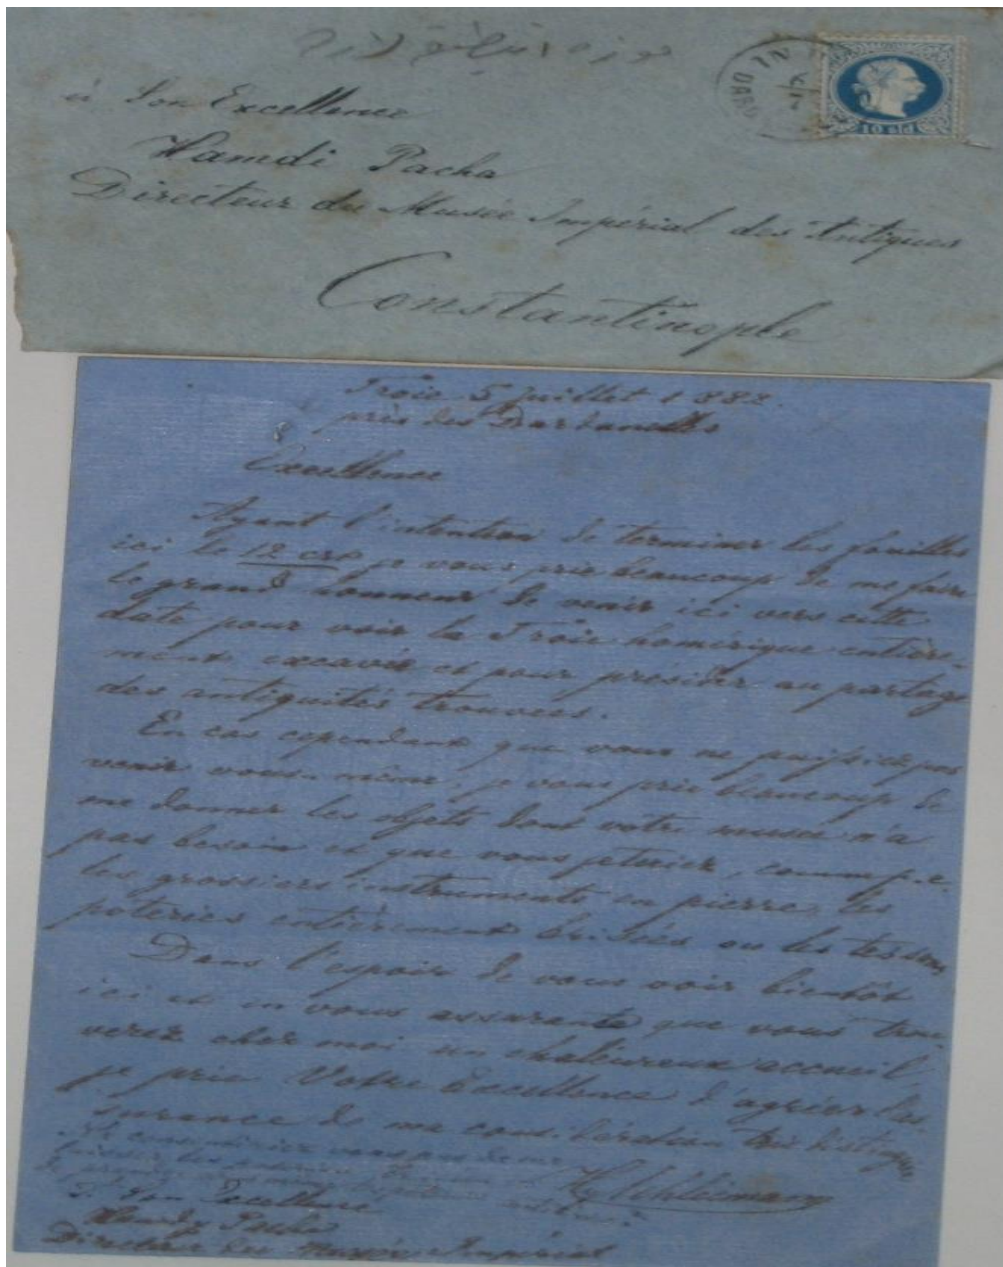 à Son Excellence
Hamdi Pacha
Directeur du Musée Impérial des Antiques
Constantinople
10 sld
Troie 5 Juillet 1882.
près des Dardanelles
Excellence
Ayant l'intention de terminer les fouilles
ici le 12 crt je vous prie beaucoup de me faire
le grand honneur de venir ici vers cette
date pour voir la Troie homérique entière-
ment excavée et pour présider au partage
des antiquités trouvées.
En cas cependant que vous ne puissiez pas
venir vous-même, je vous prie beaucoup de
me donner les objets dont votre musée n'a
pas besoin et que vous, comme p.e.
les grossiers instruments en pierre, les
poteries entièrement brisées ou les tessons
Dans l'espoir de vous voir bientôt
ici et en vous assurant que vous trou-
verez chez moi un chaleureux accueil,
je prie Votre Excellence d'agréer l'as-
surance de ma considération très distinguée
Hy Schliemann
à Son Excellence
Hamdy Pacha
Directeur du Musée Impérial